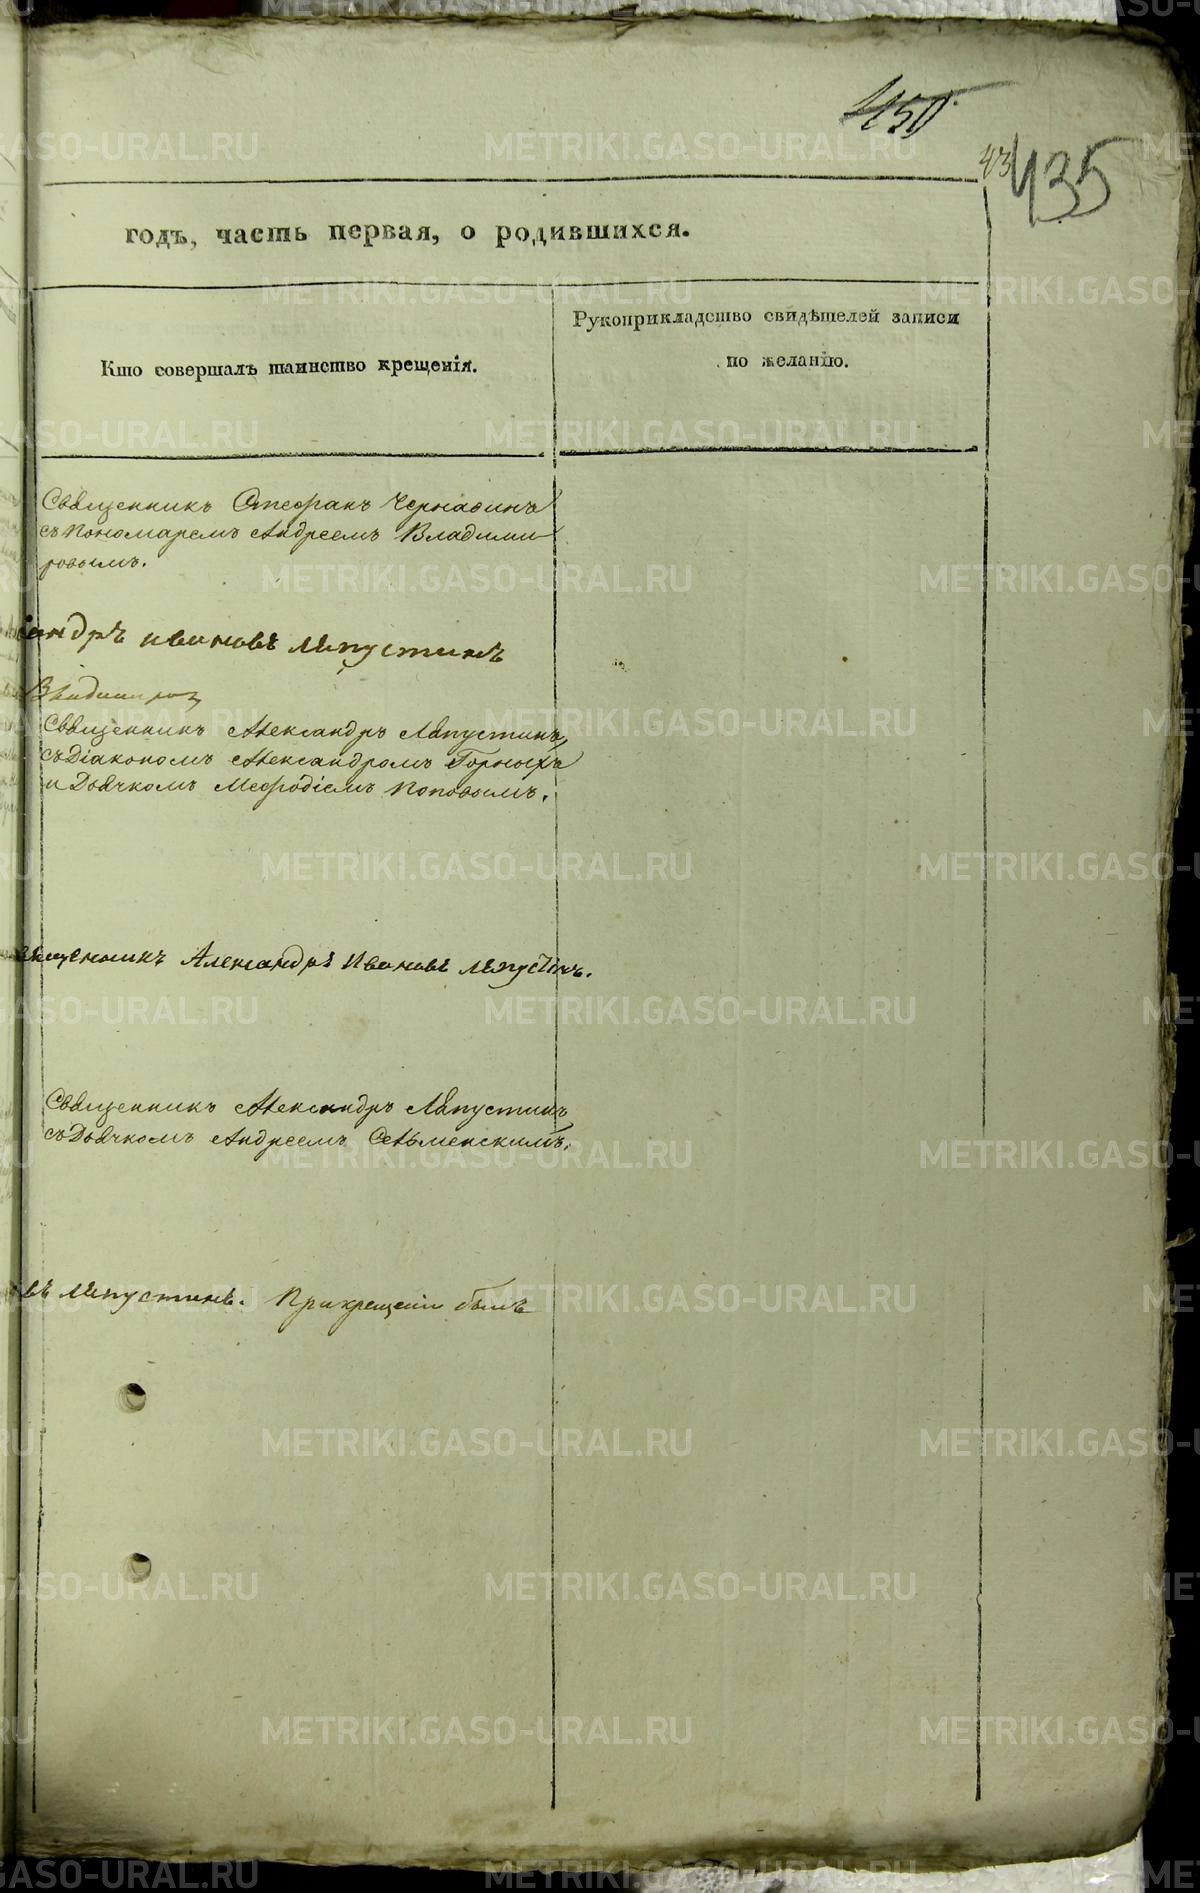 450
43
435
годъ, часть первая, о родившихся.
Кто совершалъ таинство крещенія.
Рукоприкладство свидѣтелей записи
по желанію.
Священникъ Стефанъ Чернавинъ
съ Пономаремъ Андреемъ Владими
ровымъ.
сандръ Ивановъ Ляпустинъ
Священникъ Александръ Ляпустинъ
съ Діакономъ Александромъ Горныхъ
и Дьячкомъ Меѳодіемъ Поповымъ.
Александръ Ивановъ Ляпустинъ.
Священникъ Александръ Ляпустинъ
съ Дьячкомъ Андреемъ Сельменскимъ.
въ Ляпустинъ. При крещеніи былъ
METRIKI.GASO-URAL.RU